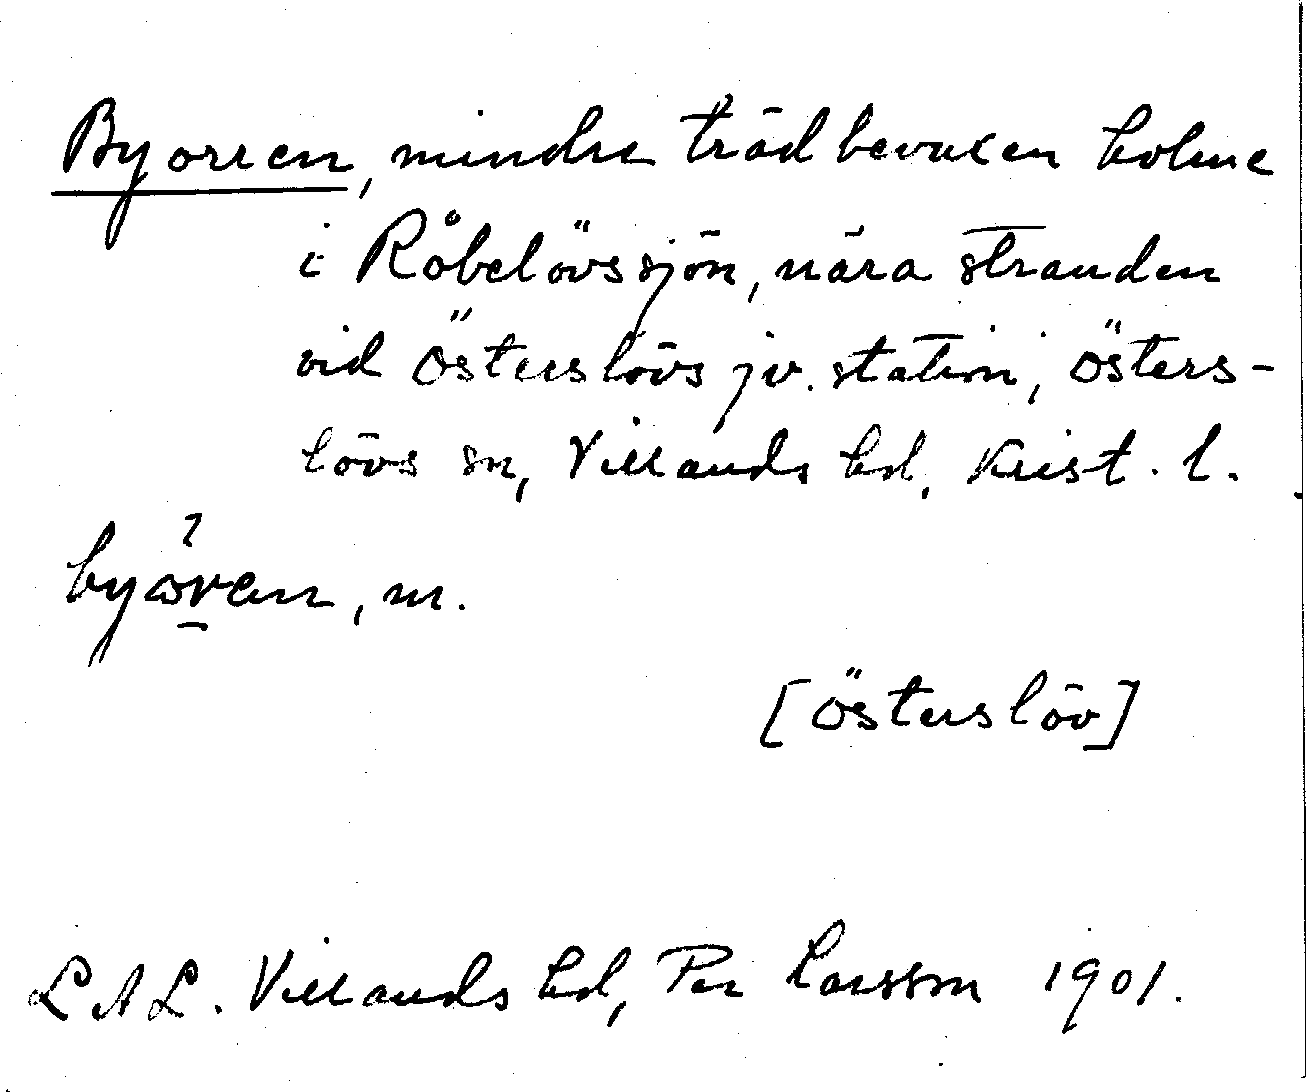 Byorren, mindre trädbevuxen holme
i Råbelövssjön, nära stranden
vid Österslövs jv. station, Österslövs-
lövs sn, Villands hd, Krist. l.
byòr̠en, m.
[Österslöv]
LAL. Villands hd, Per Larsson 1901.